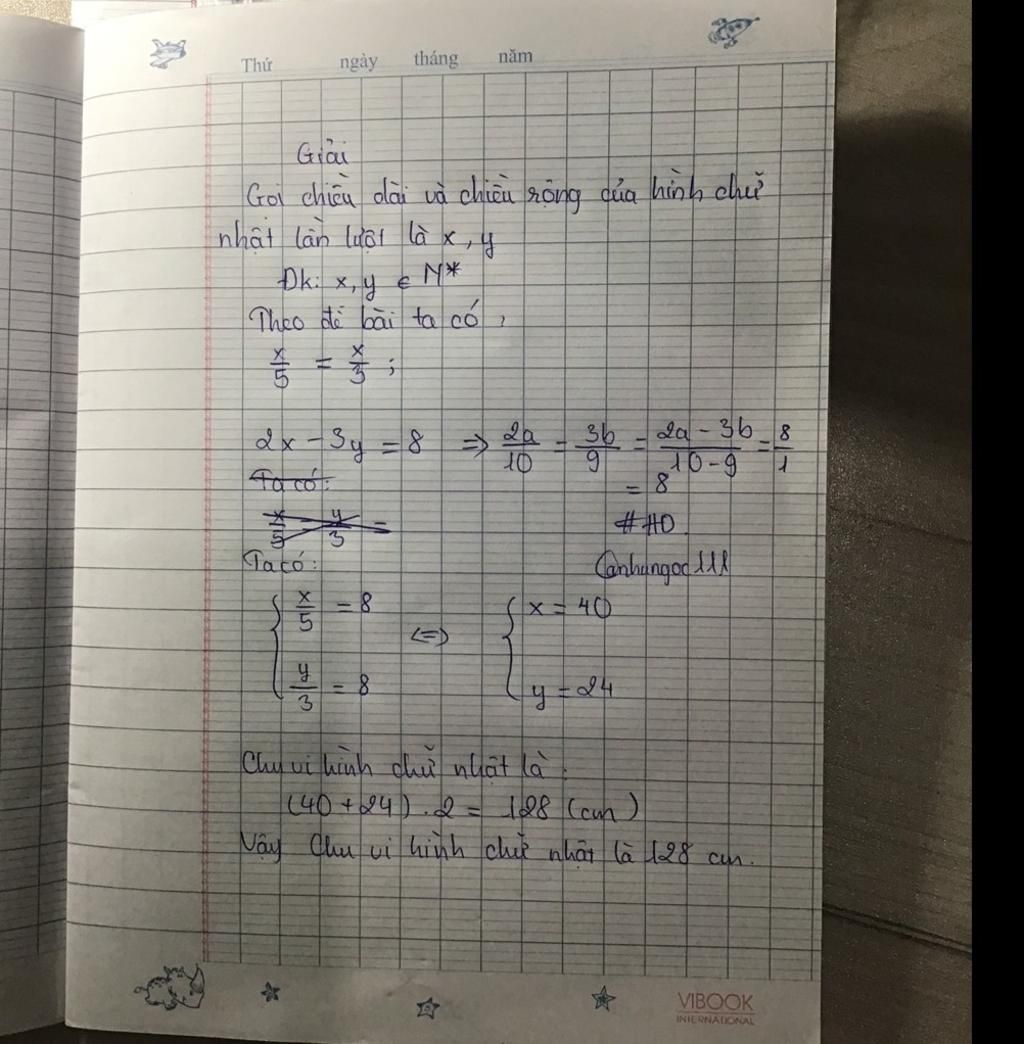 Thứ ngày tháng năm
Giải
Gọi chiều dài và chiều rộng của hình chữ
nhật lần lượt là x, y
Đk: x, y ∈ N*
Theo đề bài ta có,
x/5 = x/3 ;
2x - 3y = 8 => 2a/10 = 3b/9 = (2a - 3b)/(10 - 9) = 8/1
= 8
Ta có:
x/5 y/3 =
#HD
Ta có:
@nhungoc111
{ x/5 = 8 <=> { x = 40
{ y/3 = 8 { y = 24
Chu vi hình chữ nhật là:
(40 + 24) . 2 = 128 (cm)
Vậy Chu vi hình chữ nhật là 128 cm.
VIBOOK
INTERNATIONAL